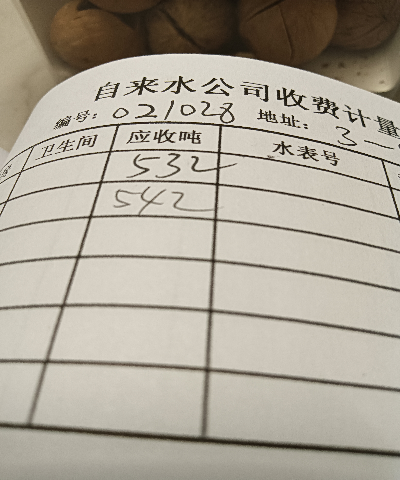 自来水公司收费计量
编号: 021028 地址: 3-
卫生间 应收吨 水表号
532
542